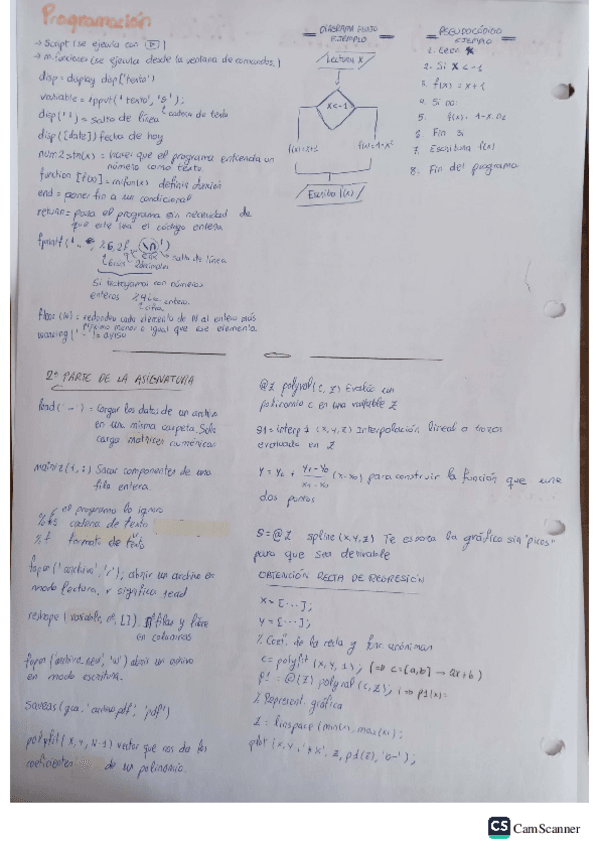 Programación
→ Script (se ejecuta con ▷)
→ m.funciones (se ejecuta desde la ventana de comandos.)
disp = display disp('texto')
variable = input('texto', 's');
↳ cadena de texto
disp(' ') = salto de línea
disp([date]) fecha de hoy
num2str(x) = hacer que el programa entienda un
número como texto.
function [f(x)] = mifun(x) definir función
end = poner fin a un condicional
return = para el programa sin necesidad de
que este lea el código entero.
fprintf('... %6.2f \n')
salto de línea
2 decimales
Si trabajamos con números
enteros %4i
entera
cifra
floor(M) = redondea cada elemento de M al entero más
próximo menor o igual que ese elemento
warning('-') = aviso
DIAGRAMA FLUJO
EJEMPLO
Lectura X
X<-1
f(x)=x+1
f(x)=1-x²
Escribo f(x)
PSEUDOCÓDIGO
EJEMPLO
1. Leer X
2. Si X<-1
3. f(x) = x+1
4. Si no:
5. f(x) = 1-x^2
6. Fin si
7. Escritura f(x)
8. Fin del programa
2ª PARTE DE LA ASIGNATURA
load('-') = cargar los datos de un archivo
en una misma carpeta. Solo
carga matrices numéricas
matriz(1,:) Sacar componentes de una
fila entera.
el programa lo ignora
%*s cadena de texto
%f formato de texto
fopen('archivo','r'); abrir un archivo en
modo lectura, r significa read
reshape(variable, nº, []). nº filas y libre
en columnas
fopen(archivo_new, 'w') abrir un archivo
en modo escritura.
saveas(gca, 'archivo.pdf', 'pdf')
polyfit(x, y, N-1) vector que nos da los
coeficientes de un polinomio.
@z polyval(c, z) Evalúa un
polinomio c en una variable z
S1 = interp1(x,y,z) Interpolación lineal a trozos
evaluada en z
para construir la función que une
dos puntos
S = @z spline(x,y,z) Te esboza la gráfica sin "picos"
para que sea derivable
OBTENCIÓN RECTA DE REGRESIÓN
x = [...];
y = [...];
% Coef. de la recta y func. anónimas
c = polyfit(x,y,1); (⇒ c=[a,b] → ax+b)
p1 = @(z) polyval(c,z); (⇒ p1(x)=
% Represent. gráfica
z = linspace(min(x), max(x));
plot(x,y,'*x', z, p1(z), 'b-');
CS CamScanner